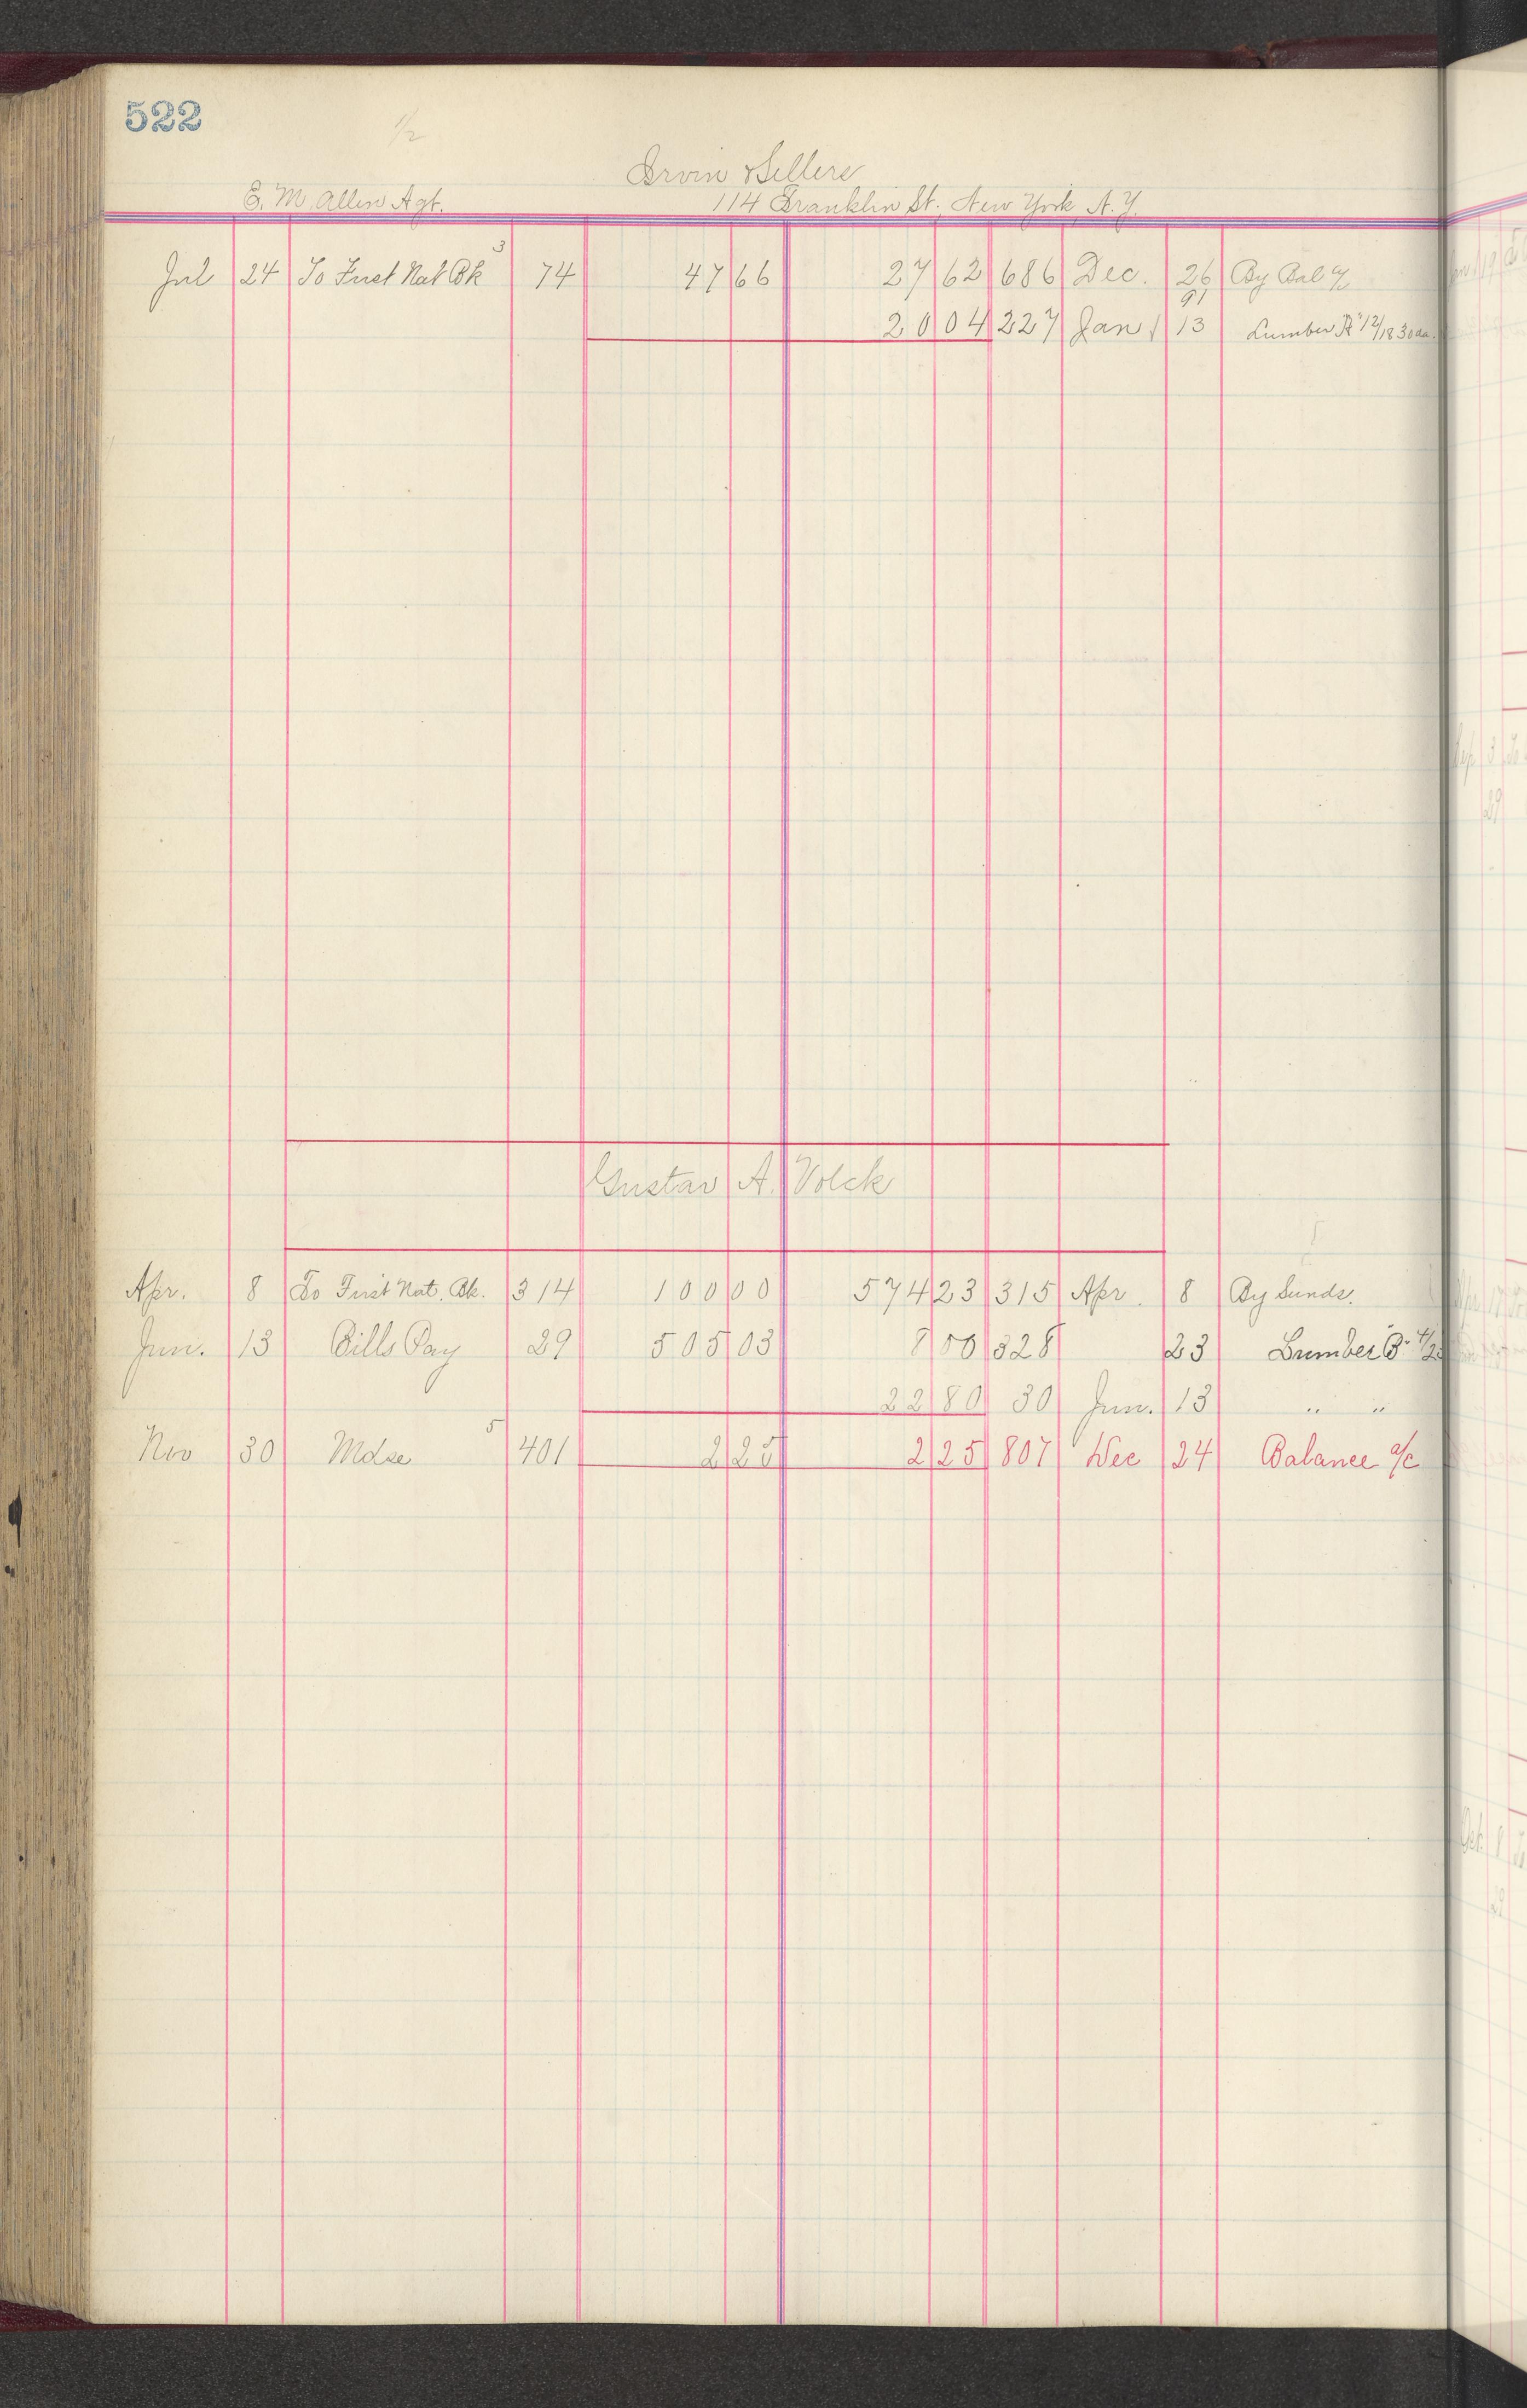 522
1/2
Irvin Sellers
E. M. Allen Agt. 114 Franklin St. New York, N.Y.
3
Jul 24 To First Nat Bk 74 47 66 27 62 686 Dec. 26 By Bal %
91
20 04 227 Jan 13 Lumber 12/18 30 da.
Gustav A. Volck
Apr. 8 To First Nat. Bk. 314 100 00 574 23 315 Apr. 8 By Sunds.
Jun. 13 Bills Pay 29 505 03 8 50 328 23 Lumber
22 80 30 Jun. 13 " "
5
Nov 30 Mdse 401 2 25 2 25 807 Dec 24 Balance a/c